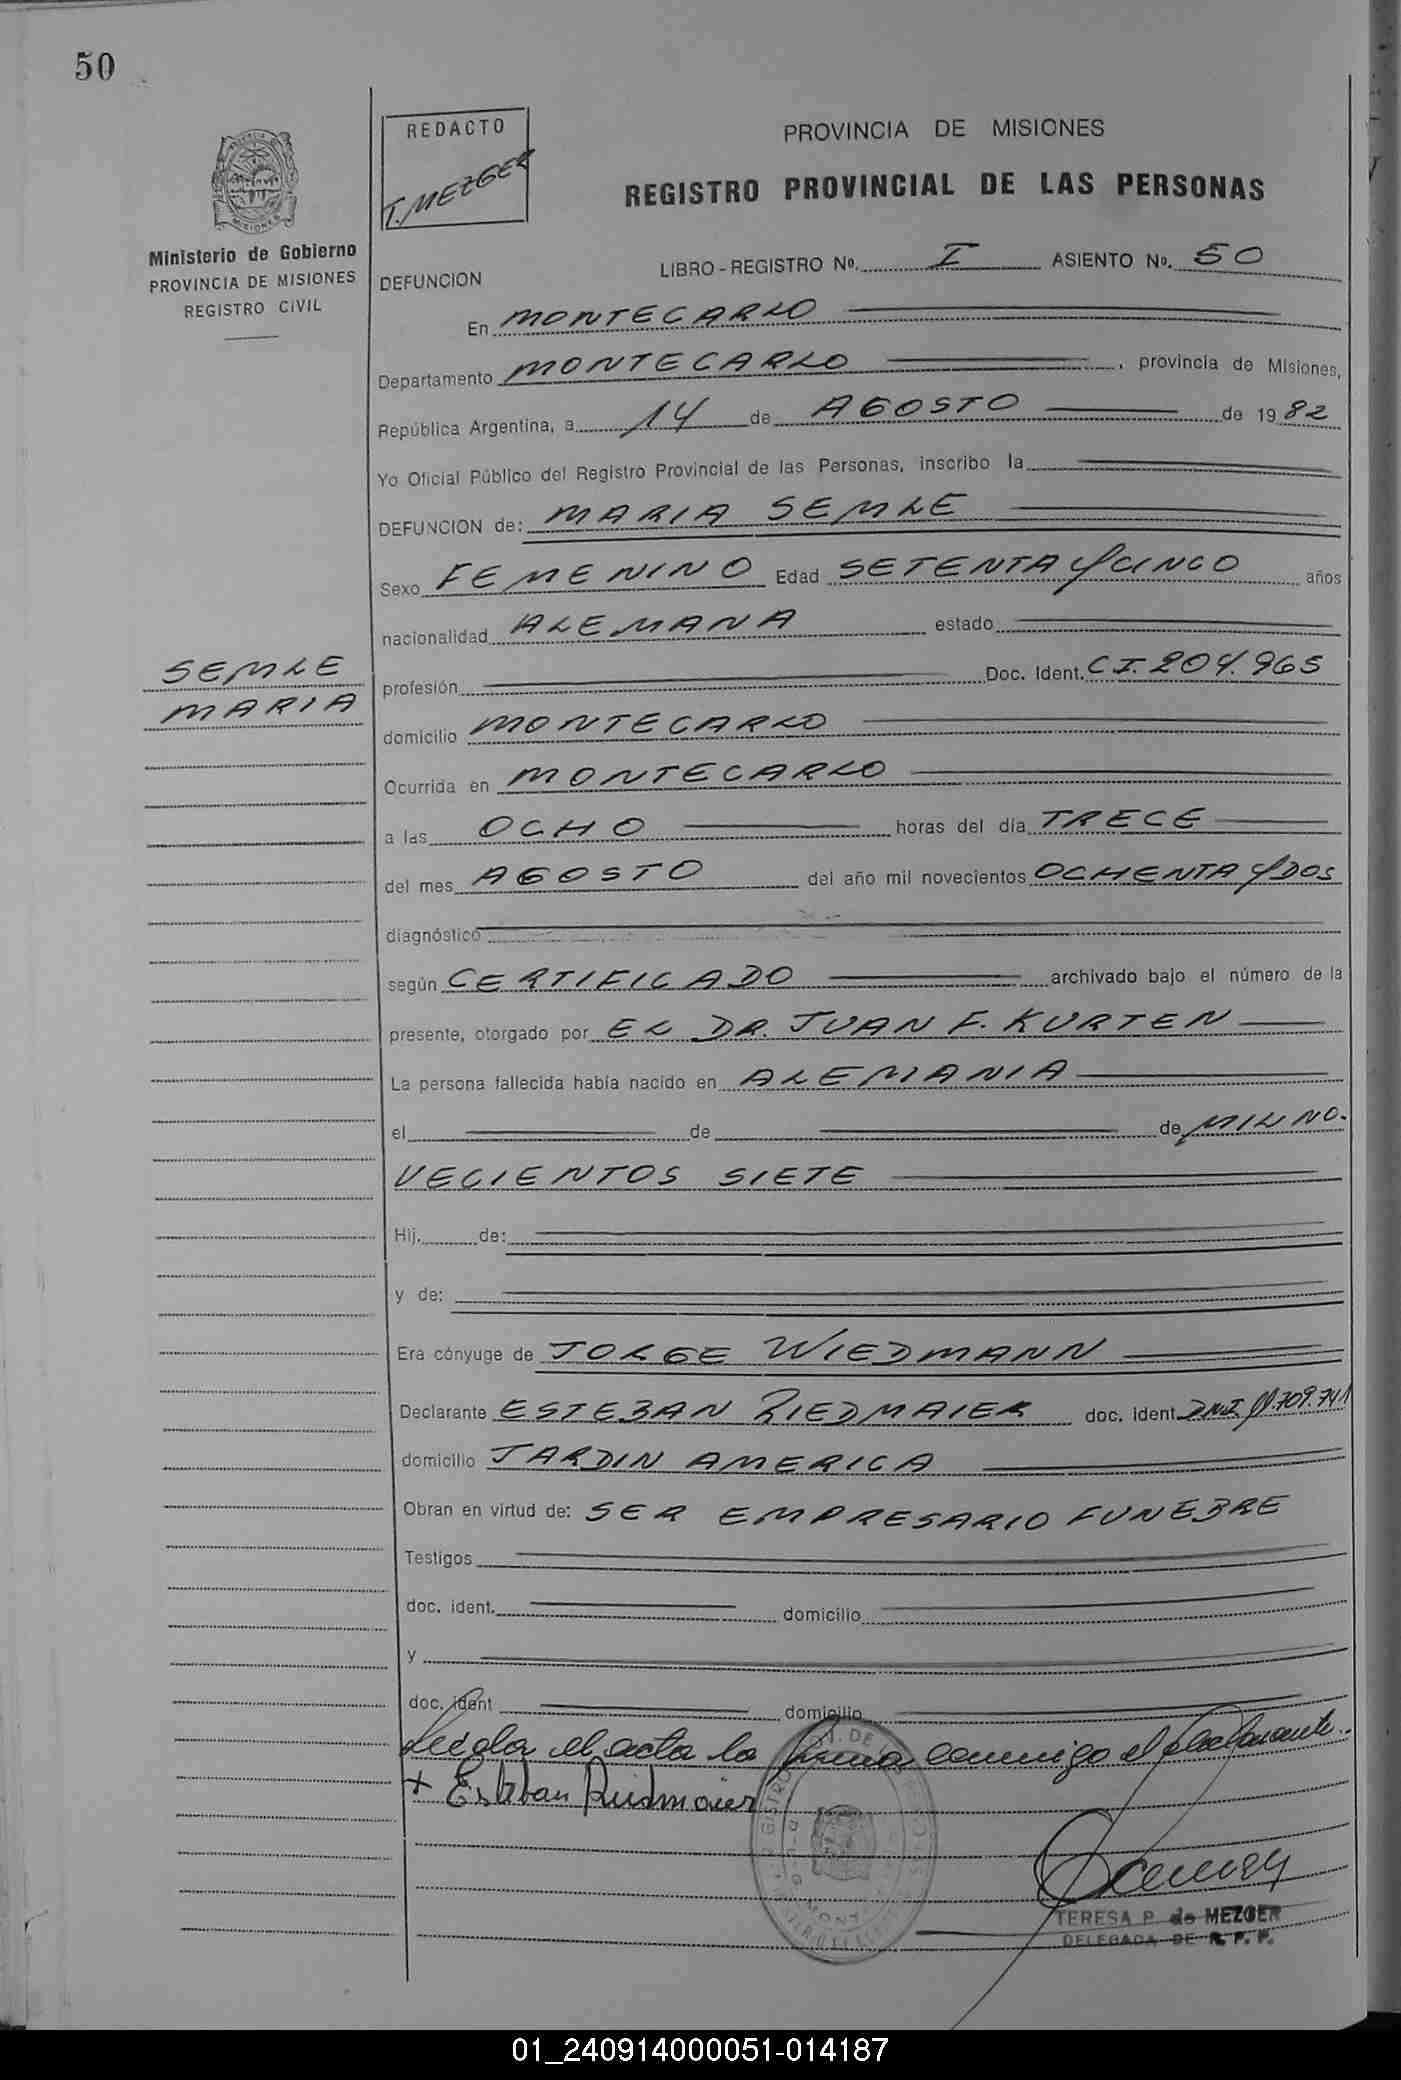 50
REDACTO
T. MEZGER
PROVINCIA DE MISIONES
REGISTRO PROVINCIAL DE LAS PERSONAS
Ministerio de Gobierno
PROVINCIA DE MISIONES
REGISTRO CIVIL
LIBRO-REGISTRO Nº. I ASIENTO Nº. 50
DEFUNCION
En MONTECARLO
Departamento MONTECARLO , provincia de Misiones,
República Argentina, a 14 de AGOSTO de 1982
Yo Oficial Público del Registro Provincial de las Personas, inscribo la
DEFUNCION de: MARIA SEMLE
Sexo FEMENINO Edad SETENTA Y CINCO años
nacionalidad ALEMANA estado
SEMLE
MARIA
profesión Doc. Ident. C.I. 204.965
domicilio MONTECARLO
Ocurrida en MONTECARLO
a las OCHO horas del día TRECE
del mes AGOSTO del año mil novecientos OCHENTA Y DOS
diagnóstico
según CERTIFICADO archivado bajo el número de la
presente, otorgado por EL DR. JUAN F. KURTEN
La persona fallecida había nacido en ALEMANIA
el de de MIL NO.
VECIENTOS SIETE
Hij. de:
y de:
Era cónyuge de JORGE WIEDMANN
Declarante ESTEBAN RIEDMAIER doc. ident D.N.I. 11.709.741
domicilio JARDIN AMERICA
Obran en virtud de: SER EMPRESARIO FUNEBRE
Testigos
doc. ident. domicilio
y
doc. ident domicilio
Leida el acta la firma conmigo el declarante..
+ Esteban Riedmaier
TERESA P. de MEZGER
DELEGADA DE R. P. P.
01_240914000051-014187